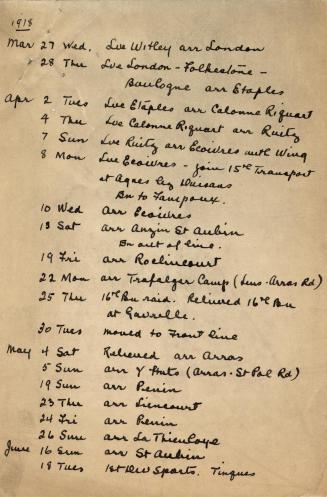 1918
Mar 27 Wed. Lve Witley arr London
28 Thu Lve London - Folkestone -
Boulogne arr Etaples
Apr 2 Tues Lve Etaples arr Calonne Riquart
4 Thu Lve Calonne Riquart arr Ruitz
7 Sun Lve Ruitz arr Ecoivres with Wing
8 Mon Lve Ecoivres - join 15th Transport
at Agnes lez Duisans
Bn to Fampoux.
10 Wed arr Ecoivres
13 Sat arr Anzin St Aubin
Bn out of line.
19 Fri arr Roclincourt
22 Mon arr Trafalger Camp (Lens-Arras Rd)
25 Thu 16th Bn raid. Relieved 16th Bn
at Gavrelle.
30 Tues moved to Front line
May 4 Sat Relieved arr Arras
5 Sun arr Y Huts (Arras-St Pol Rd)
19 Sun arr Penin
23 Thu arr Liencourt
24 Fri arr Penin
26 Sun arr La Thieuloye
June 16 Sun arr St Aubin
18 Tues 1st Div Sports. Tinques